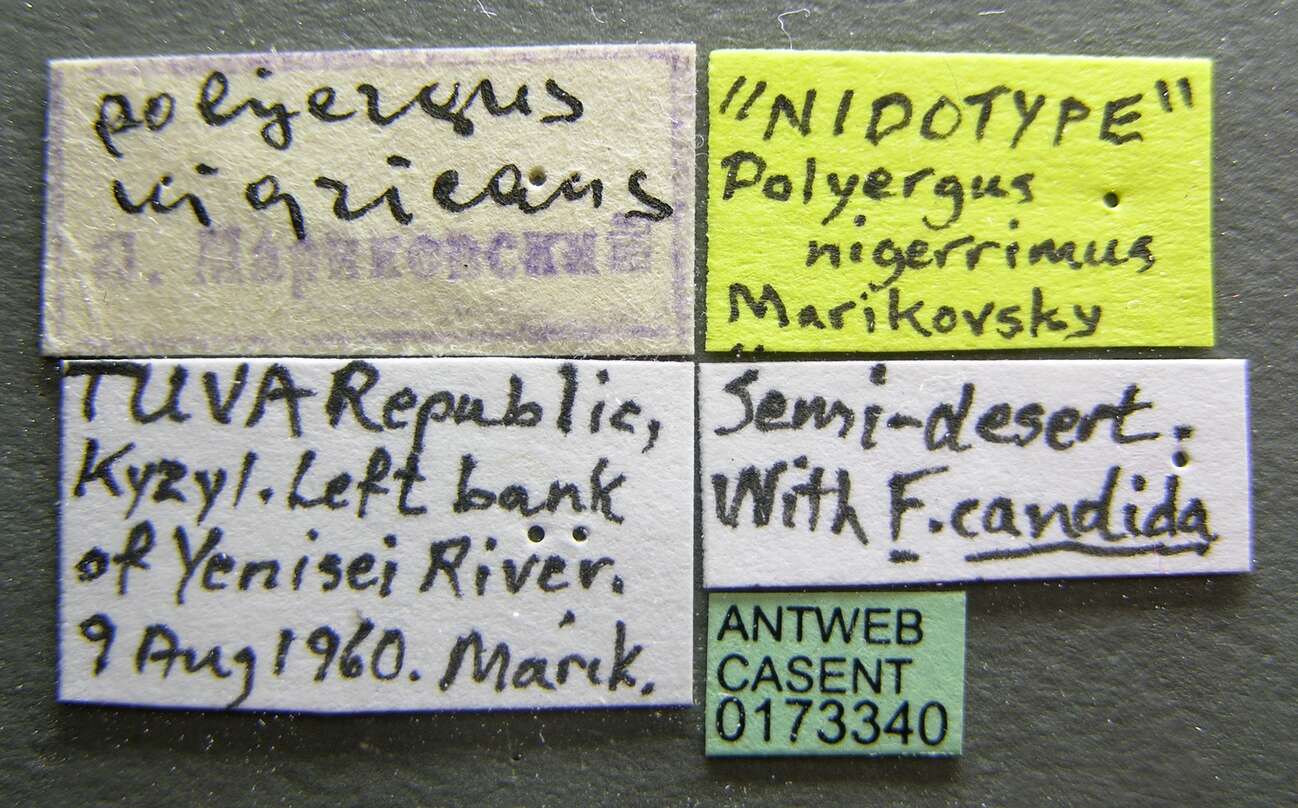 polyergus
nigricans
П. Мариковский
"NIDOTYPE"
Polyergus
nigerrimus
Marikovsky
TUVA Republic,
Kyzyl. Left bank
of Yenisei River.
9 Aug 1960. Marik.
Semi-desert.
With F. candida
ANTWEB
CASENT
0173340